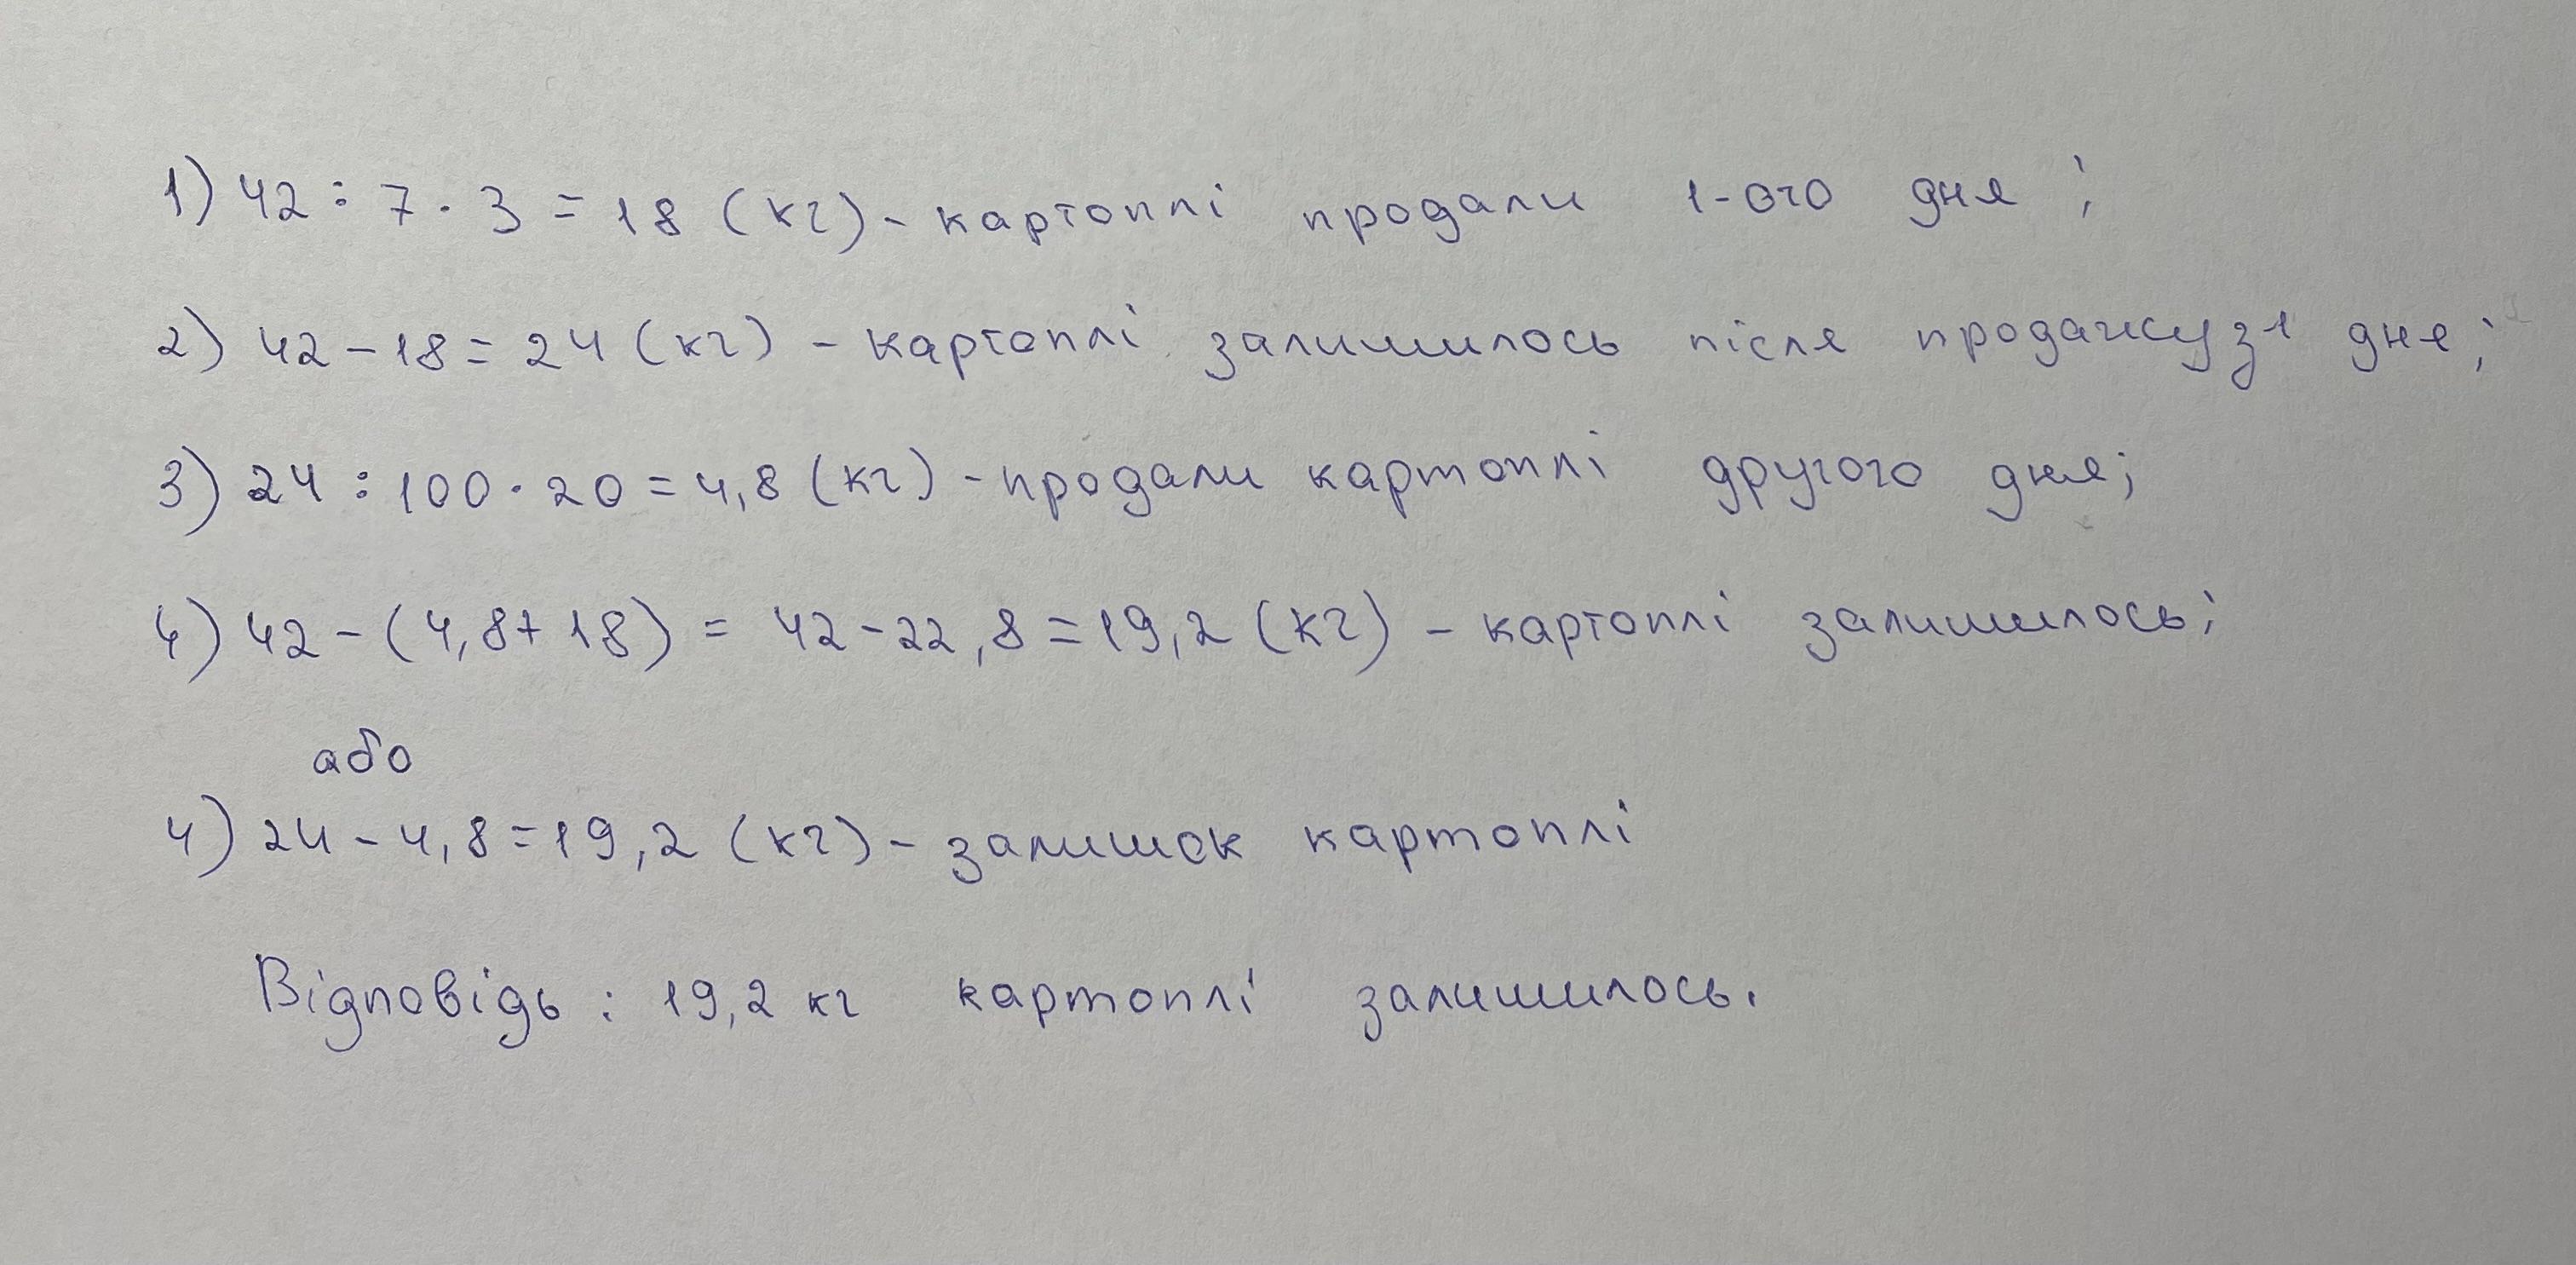 1) 42 : 7 · 3 = 18 (кг) - картоплі продали 1-ого дня ;
2) 42 - 18 = 24 (кг) - картоплі залишилось після продажу з 1 дня;
3) 24 : 100 · 20 = 4,8 (кг) - продали картоплі другого дня;
4) 42 - (4,8 + 18) = 42 - 22,8 = 19,2 (кг) - картоплі залишилось;
або
4) 24 - 4,8 = 19,2 (кг) - залишок картоплі
Відповідь : 19,2 кг картоплі залишилось.